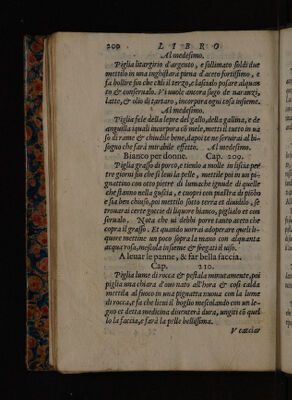 200 LIBRO
Al medesimo.
Piglia litargirio d'argento, e sullimato soldi due
mettilo in una inghistara piena d'aceto fortissimo, e
fa bollire fin che cali il terzo, e lascialo posare alquan
to & conservalo. Vi vuole ancora sugo de naranzi,
latte, & olio di tartaro, incorpora ogni cosa insieme.
Al medesimo.
Piglia fele della lepre del gallo, della gallina, e de
anguilla iquali incorpora cõ mele, metti il tutto in va
so di rame & chiudilo bene, dapoi te ne servirai al bi-
sogno che farà mirabile effetto. Al medesimo.
Bianco per donne. Cap. 209.
Piglia grasso di porco, e tienlo a molle in liscia per
tre giorni fin che si levi la pelle, mettile poi in un pi-
gnattino con otto pietre di lumache ignude di quelle
che stanno nella guscia, e cuopri con piastra di piõbo
e sia ben chiuso, poi mettilo sotto terra et aluidilo, se
trouarai certe goccie di liquore bianco, piglialo et con
servalo. Nota che vi debbi porre tanto aceto che
copra il grasso. Et quando vorrai adoperare queste li-
quore mettine un poco sopra la mano con alquanta
acqua rosa, mescola insieme & fregati il viso.
A leuar le panne, & far bella faccia.
Cap. 210.
Piglia lume di rocca & pestala minutamente, poi
piglia una chiara d'ovo nato all'hora & cosi calda
mettila al fuoco in una pignatta nuova con la lume
di rocca, e fa che lievi il boglio mescolando con un le-
gno et detta medicina diventerà dura, ungiti cõ quel
lo la faccia, e farà la pelle bellissima.
V cacciar